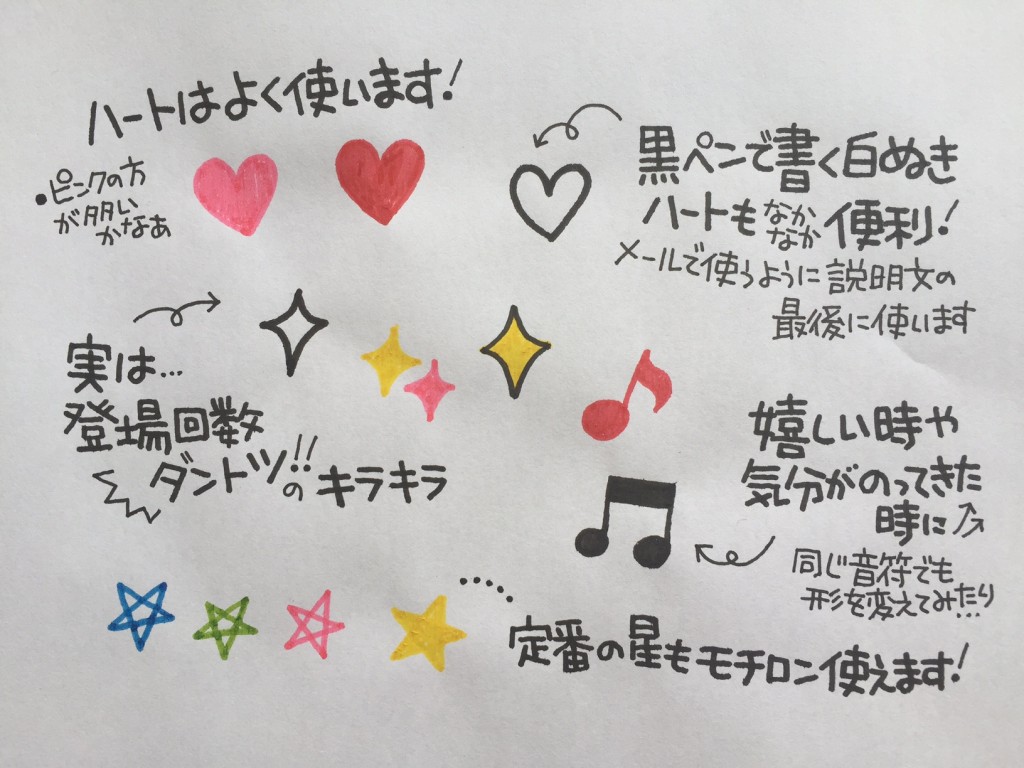 ハートはよく使います!
・ピンクの方
が多い
かなぁ
黒ペンで書く白ぬき
ハートもなかなか便利!
メールで使うように説明文の
最後に使います
実は…
登場回数
ダントツ!!のキラキラ
嬉しい時や
気分がのってきた
時に
同じ音符でも
形を変えてみたり…
定番の星もモチロン使えます!